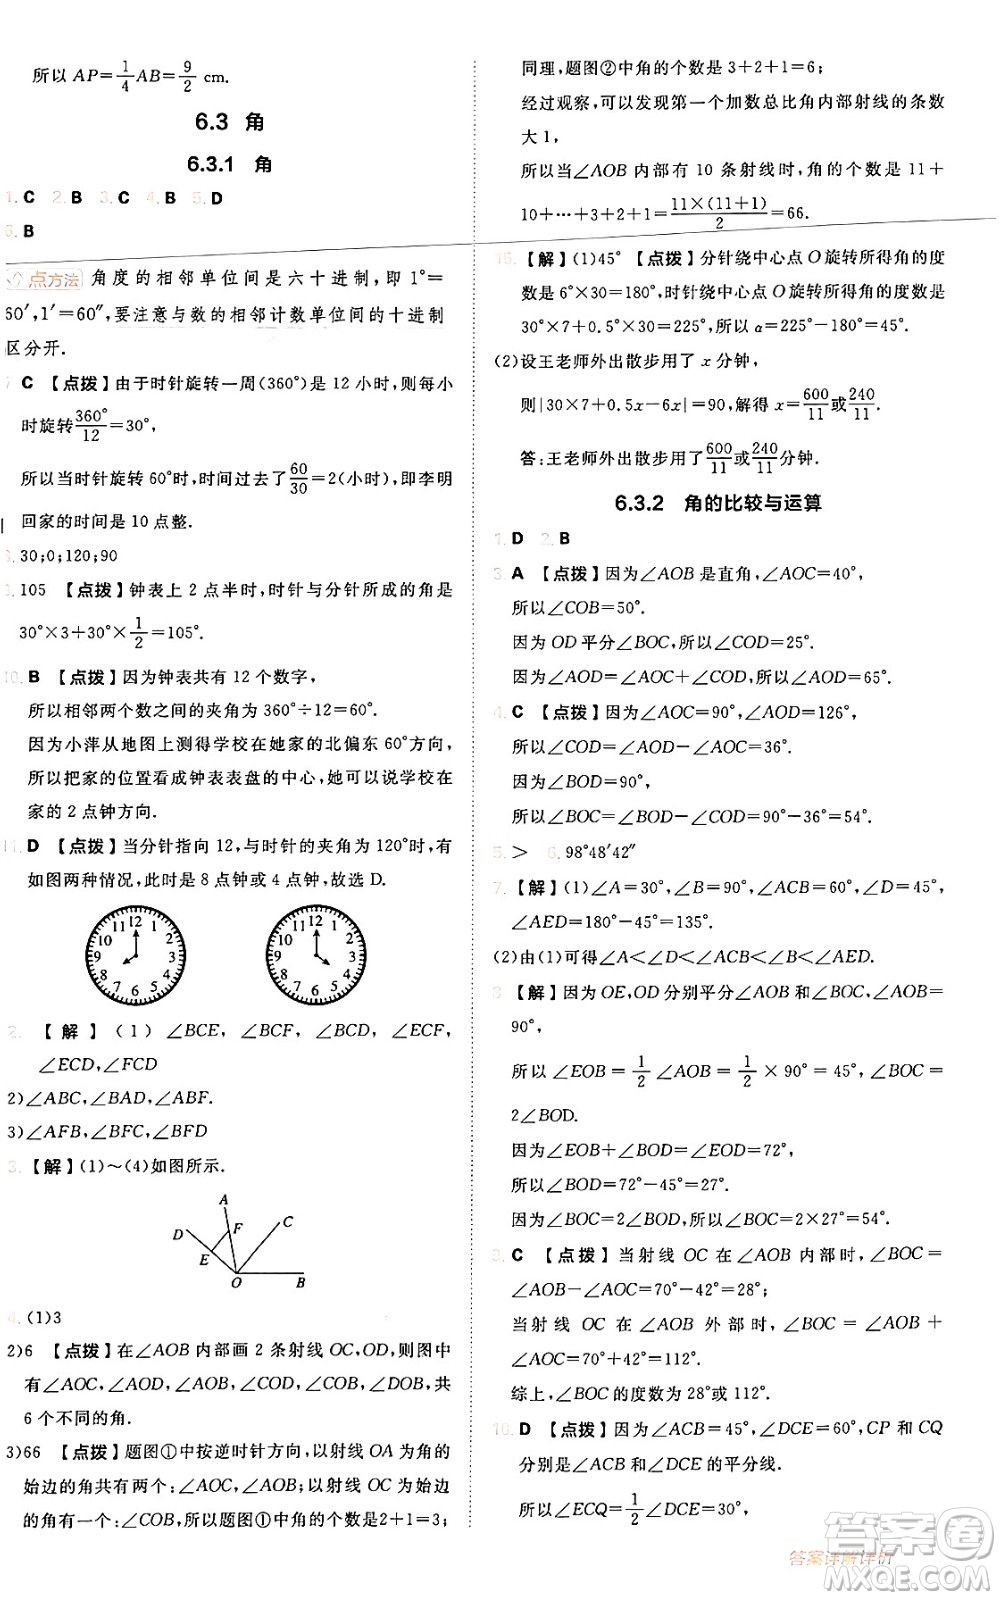 所以 AP=1/4AB=9/2 cm.
6.3 角
6.3.1 角
1. C 2. B 3. C 4. B 5. D
6. B
点方法 角度的相邻单位间是六十进制,即 1°=
60′,1′=60″,要注意与数的相邻计数单位间的十进制
区分开.
7. C 【点拨】由于时针旋转一周(360°)是 12 小时,则每小
时旋转360°/12=30°,
所以当时针旋转 60°时,时间过去了60/30=2(小时),即李明
回家的时间是 10 点整.
8. 30;0;120;90
9. 105 【点拨】钟表上 2 点半时,时针与分针所成的角是
30°×3+30°×1/2=105°.
10. B 【点拨】因为钟表共有 12 个数字,
所以相邻两个数之间的夹角为 360°÷12=30°.
因为小萍从地图上测得学校在她家的北偏东 60°方向,
所以把家的位置看成钟表表盘的中心,她可以说学校在
家的 2 点钟方向.
11. D 【点拨】当分针指向 12,与时针的夹角为 120°时,有
如图两种情况,此时是 8 点钟或 4 点钟,故选 D.
11 12 1
10 2
9 3
8 4
7 6 5
11 12 1
10 2
9 3
8 4
7 6 5
2. 【解】(1)∠BCE,∠BCF,∠BCD,∠ECF,
∠ECD,∠FCD
2)∠ABC,∠BAD,∠ABF.
3)∠AFB,∠BFC,∠BFD
3. 【解】(1)~(4)如图所示.
A
D F C
E
O B
4. (1)3
2)6 【点拨】在∠AOB 内部画 2 条射线 OC,OD,则图中
有∠AOC,∠AOD,∠AOB,∠COD,∠COB,∠DOB,共
6 个不同的角.
3)66 【点拨】题图①中按逆时针方向,以射线 OA 为角的
始边的角共有两个:∠AOC,∠AOB;以射线 OC 为始边
的角有一个:∠COB,所以题图①中角的个数是2+1=3;
同理,题图②中角的个数是 3+2+1=6;
经过观察,可以发现第一个加数总比角内部射线的条数
大 1,
所以当∠AOB 内部有 10 条射线时,角的个数是 11+
10+⋯+3+2+1=11×(11+1)/2=66.
15. 【解】(1)45° 【点拨】分针绕中心点 O 旋转所得角的度
数是 6°×30=180°,时针绕中心点 O 旋转所得角的度数是
30°×7+0.5°×30=225°,所以 α=225°-180°=45°.
(2)设王老师外出散步用了 x 分钟,
则|30×7+0.5x-6x|=90,解得 x=600/11或240/11.
答:王老师外出散步用了600/11或240/11分钟.
6.3.2 角的比较与运算
1. D 2. B
3. A 【点拨】因为∠AOB 是直角,∠AOC=40°,
所以∠COB=50°.
因为 OD 平分∠BOC,所以∠COD=25°.
因为∠AOD=∠AOC+∠COD,所以∠AOD=65°.
4. C 【点拨】因为∠AOC=90°,∠AOD=126°,
所以∠COD=∠AOD-∠AOC=36°.
因为∠BOD=90°,
所以∠BOC=∠BOD-∠COD=90°-36°=54°.
5. > 6. 98°48′42″
7. 【解】(1)∠A=30°,∠B=90°,∠ACB=60°,∠D=45°,
∠AED=180°-45°=135°.
(2)由(1)可得∠A<∠D<∠ACB<∠B<∠AED.
8. 【解】因为 OE,OD 分别平分∠AOB 和∠BOC,∠AOB=
90°,
所以∠EOB=1/2∠AOB=1/2×90°=45°,∠BOC=
2∠BOD.
因为∠EOB+∠BOD=∠EOD=72°,
所以∠BOD=72°-45°=27°.
因为∠BOC=2∠BOD,所以∠BOC=2×27°=54°.
9. C 【点拨】当射线 OC 在∠AOB 内部时,∠BOC=
∠AOB-∠AOC=70°-42°=28°;
当射线 OC 在∠AOB 外部时,∠BOC=∠AOB+
∠AOC=70°+42°=112°.
综上,∠BOC 的度数为 28°或 112°.
10. D 【点拨】因为∠ACB=45°,∠DCE=60°,CP 和 CQ
分别是∠ACB 和∠DCE 的平分线.
所以∠ECQ=1/2∠DCE=30°,
答案详解详析
答案圈
MXQE.COM